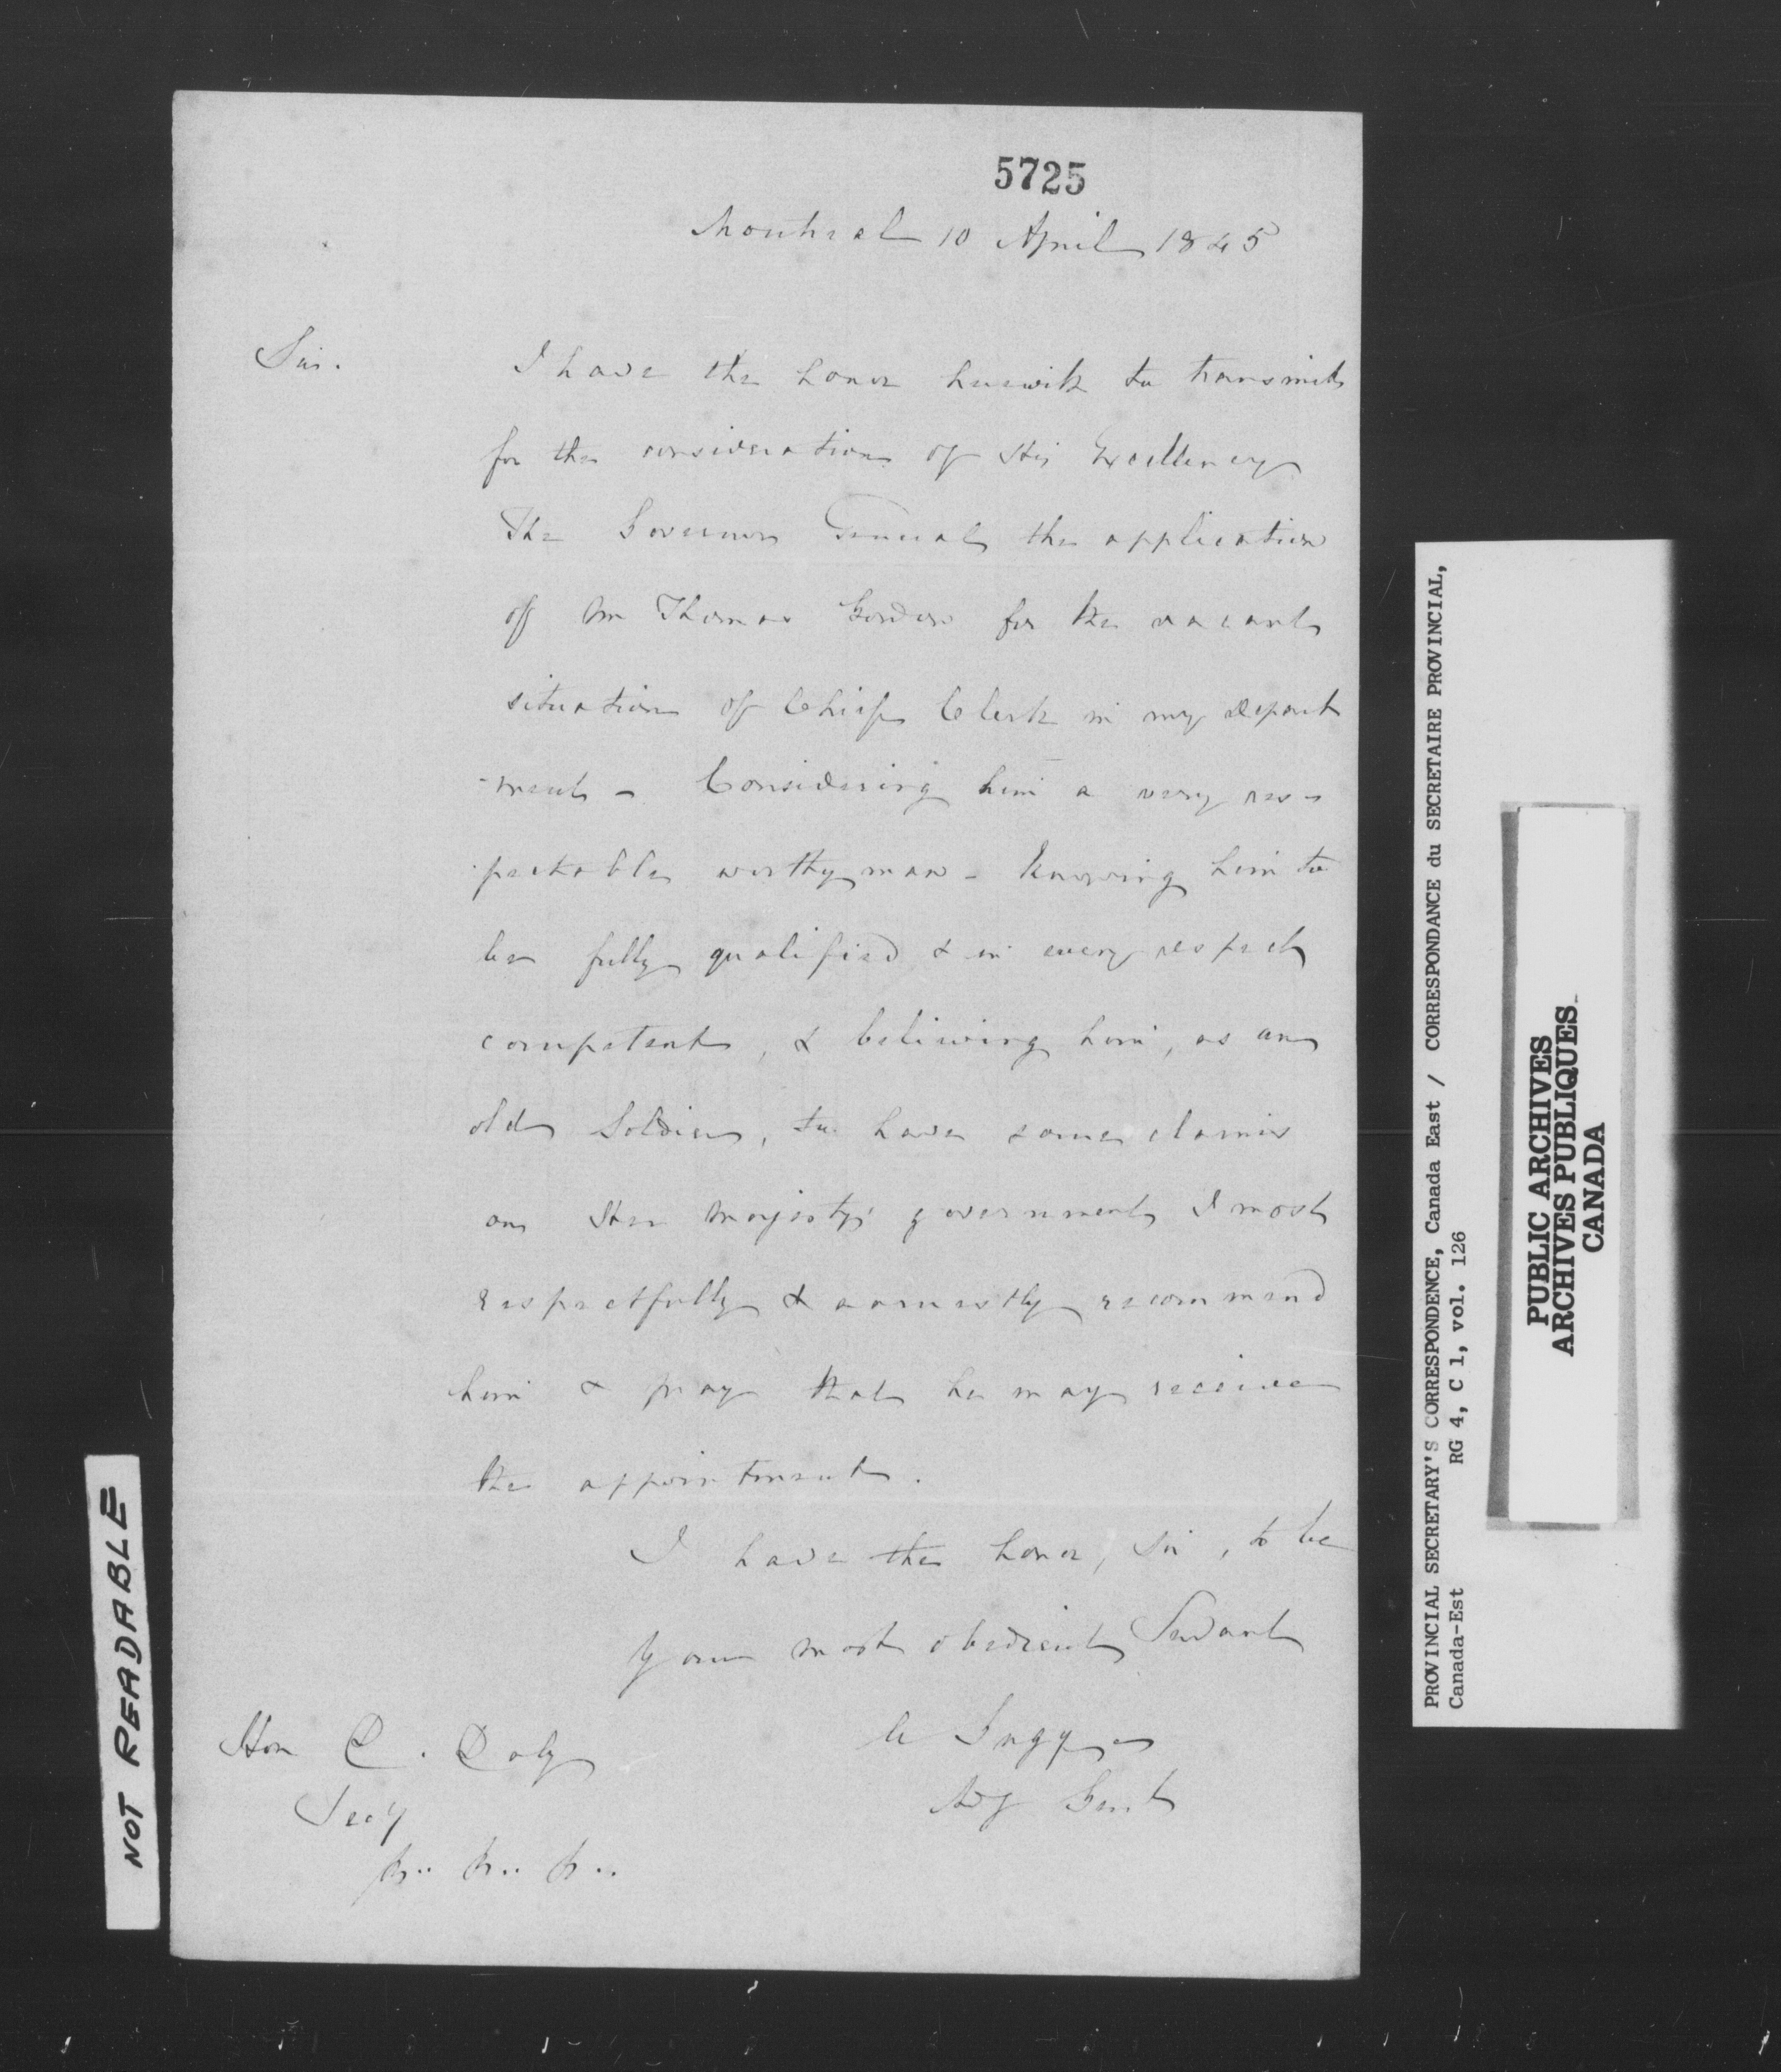 5725
Montreal 10 April 1845
Sir.
I have the honor herewith to transmit
for the consideration of His Excellency
The Governor General the application
of Mr Thomas Gordon for the vacant
situation of Chief Clerk in my Depart
-ment - Considering him a very res-
-pectable worthy man - knowing him to
be fully qualified & in every respect
competent, & believing him, as an
old Soldier, to have some claims
on Her Majesty's government, I most
respectfully & earnestly recommend
him & pray that he may receive
the appointment.
I have the honor, Sir, to be
Your most obedient Servant
C Gugy
Adj Genl
Hon D. Daly
Secy
&.. &.. &..
NOT READABLE
PROVINCIAL SECRETARY'S CORRESPONDENCE, Canada East / CORRESPONDANCE du SECRETAIRE PROVINCIAL,
Canada-Est RG 4, C 1, vol. 126
PUBLIC ARCHIVES
ARCHIVES PUBLIQUES
CANADA